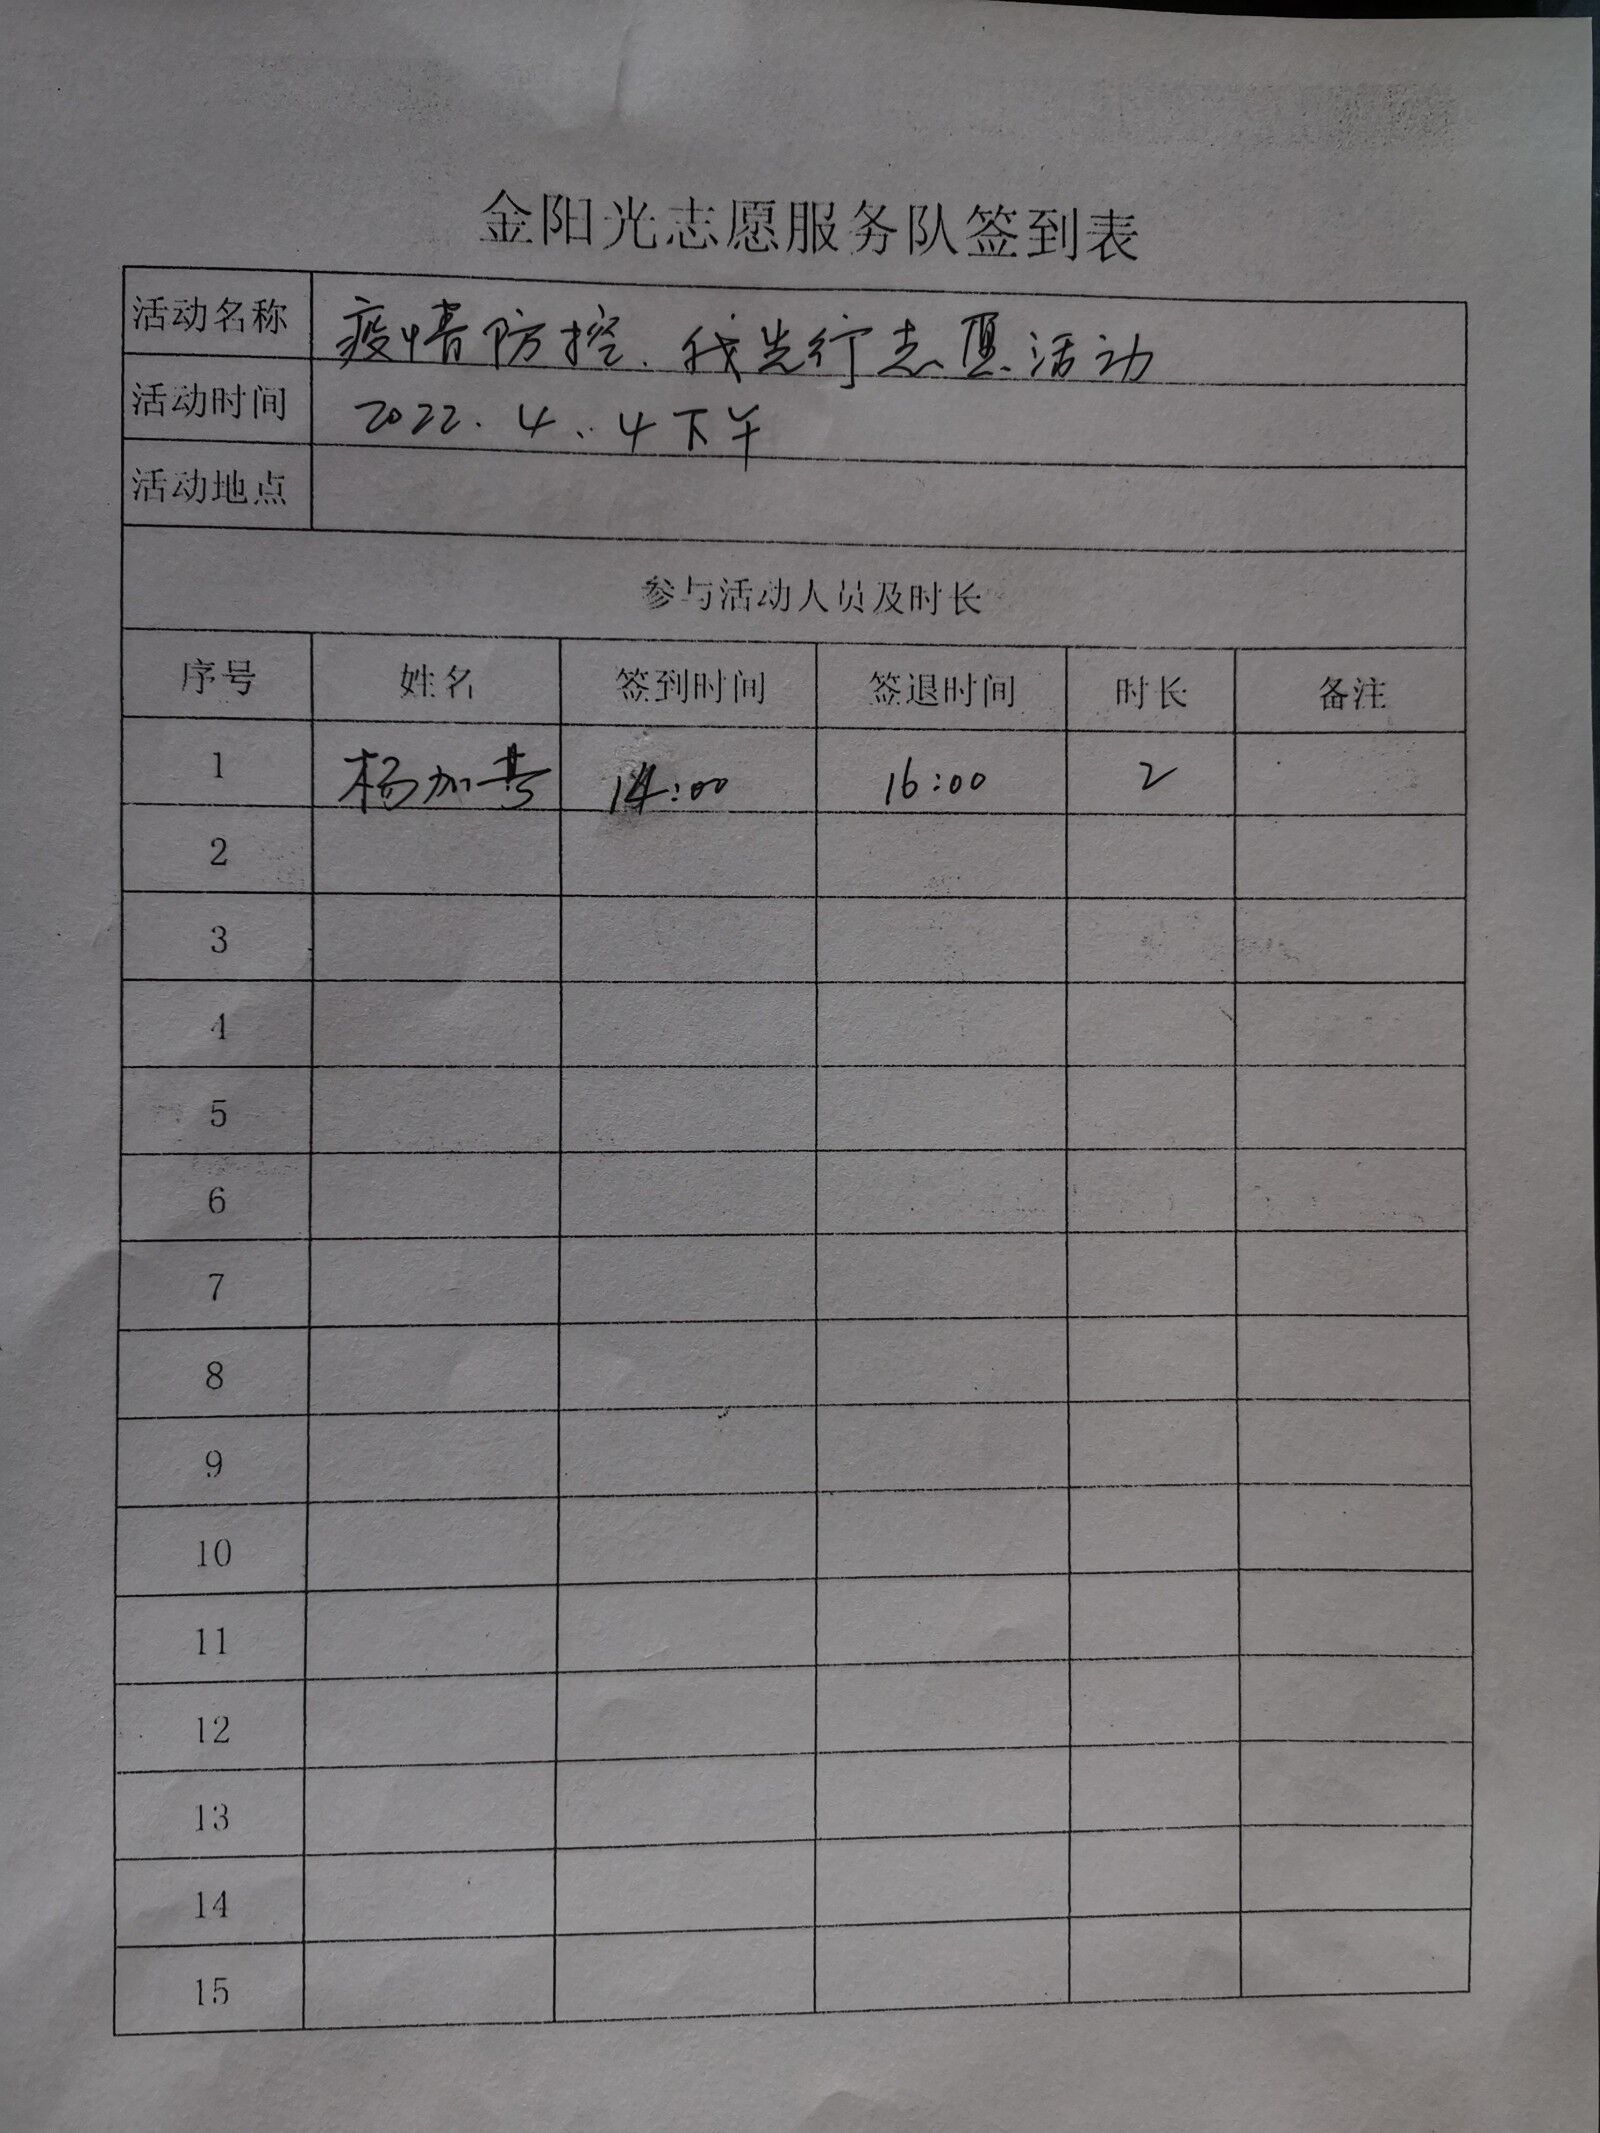 金阳光志愿服务队签到表
活动名称 疫情防控、我先行志愿活动
活动时间 2022.4.4下午
活动地点
参与活动人员及时长
序号 姓名 签到时间 签退时间 时长 备注
1 杨加 14:00 16:00 2
2
3
4
5
6
7
8
9
10
11
12
13
14
15